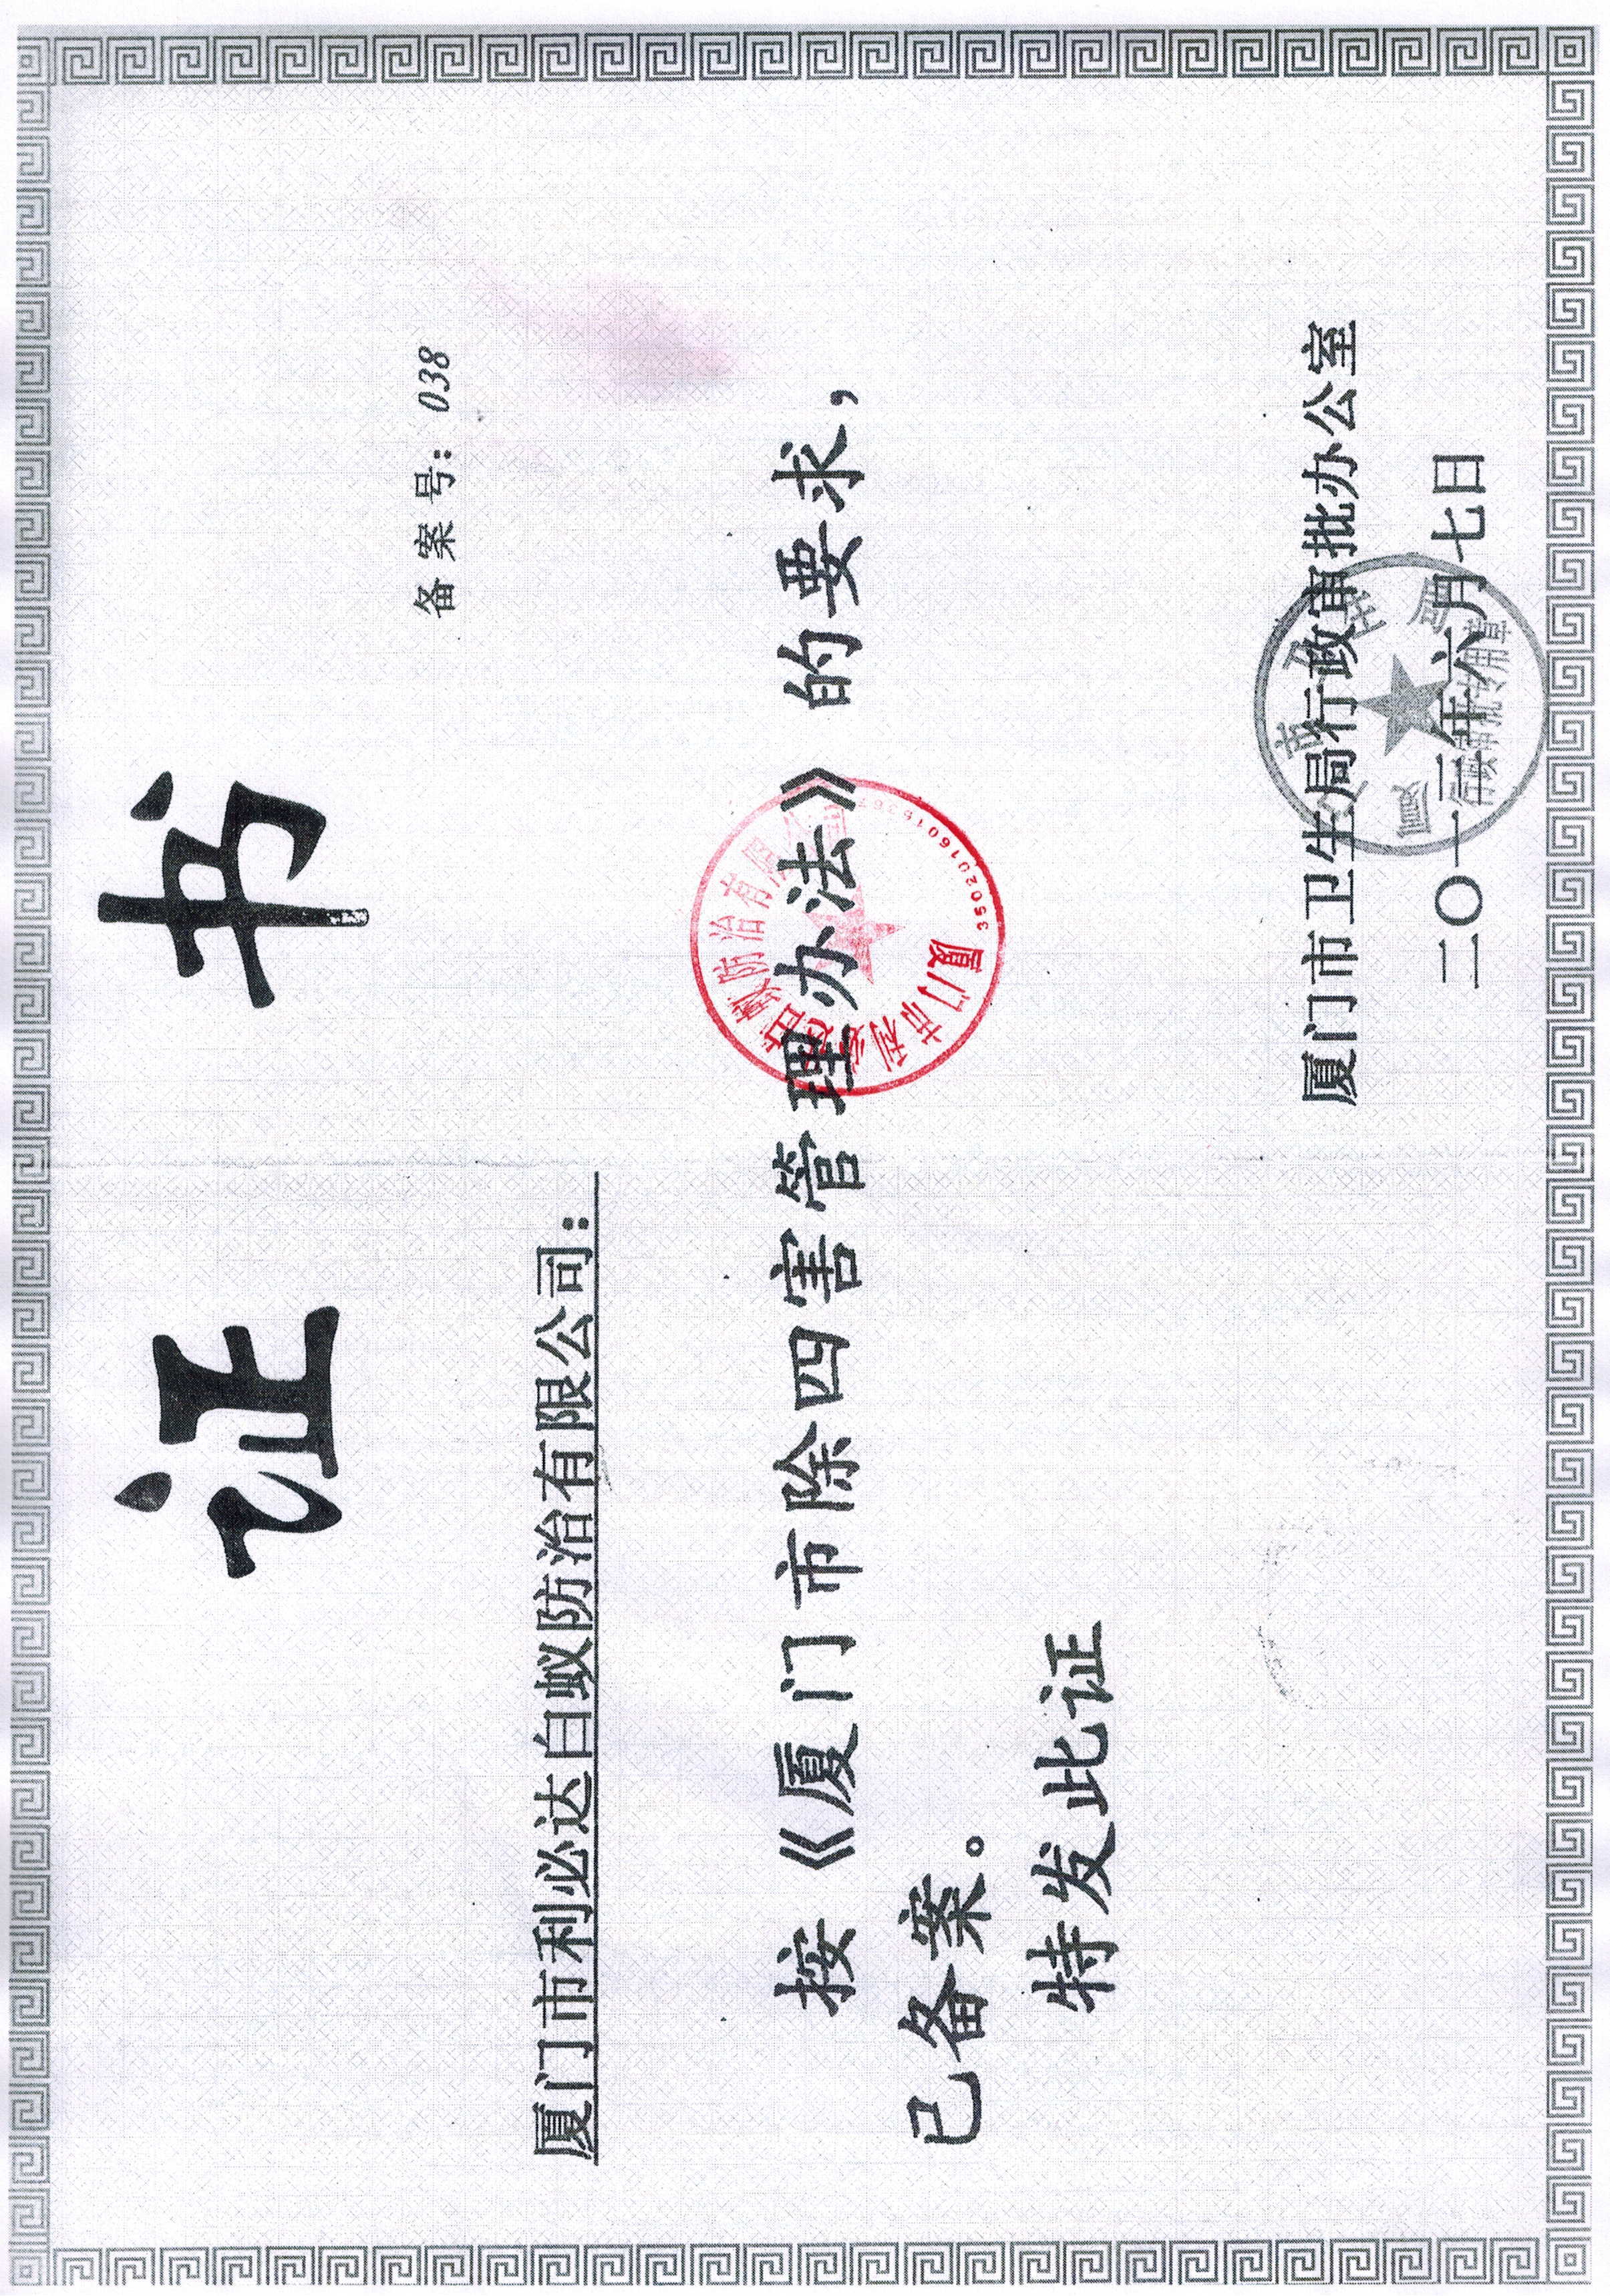 证书
备案号：038
厦门市利必达白蚁防治有限公司：
按《厦门市除四害管理办法》的要求，
已备案。
特发此证
厦门市利必达白蚁防治有限公司
厦门市卫生局行政审批办公室
二〇一二年六月七日
厦门市卫生局
行政审批专用章